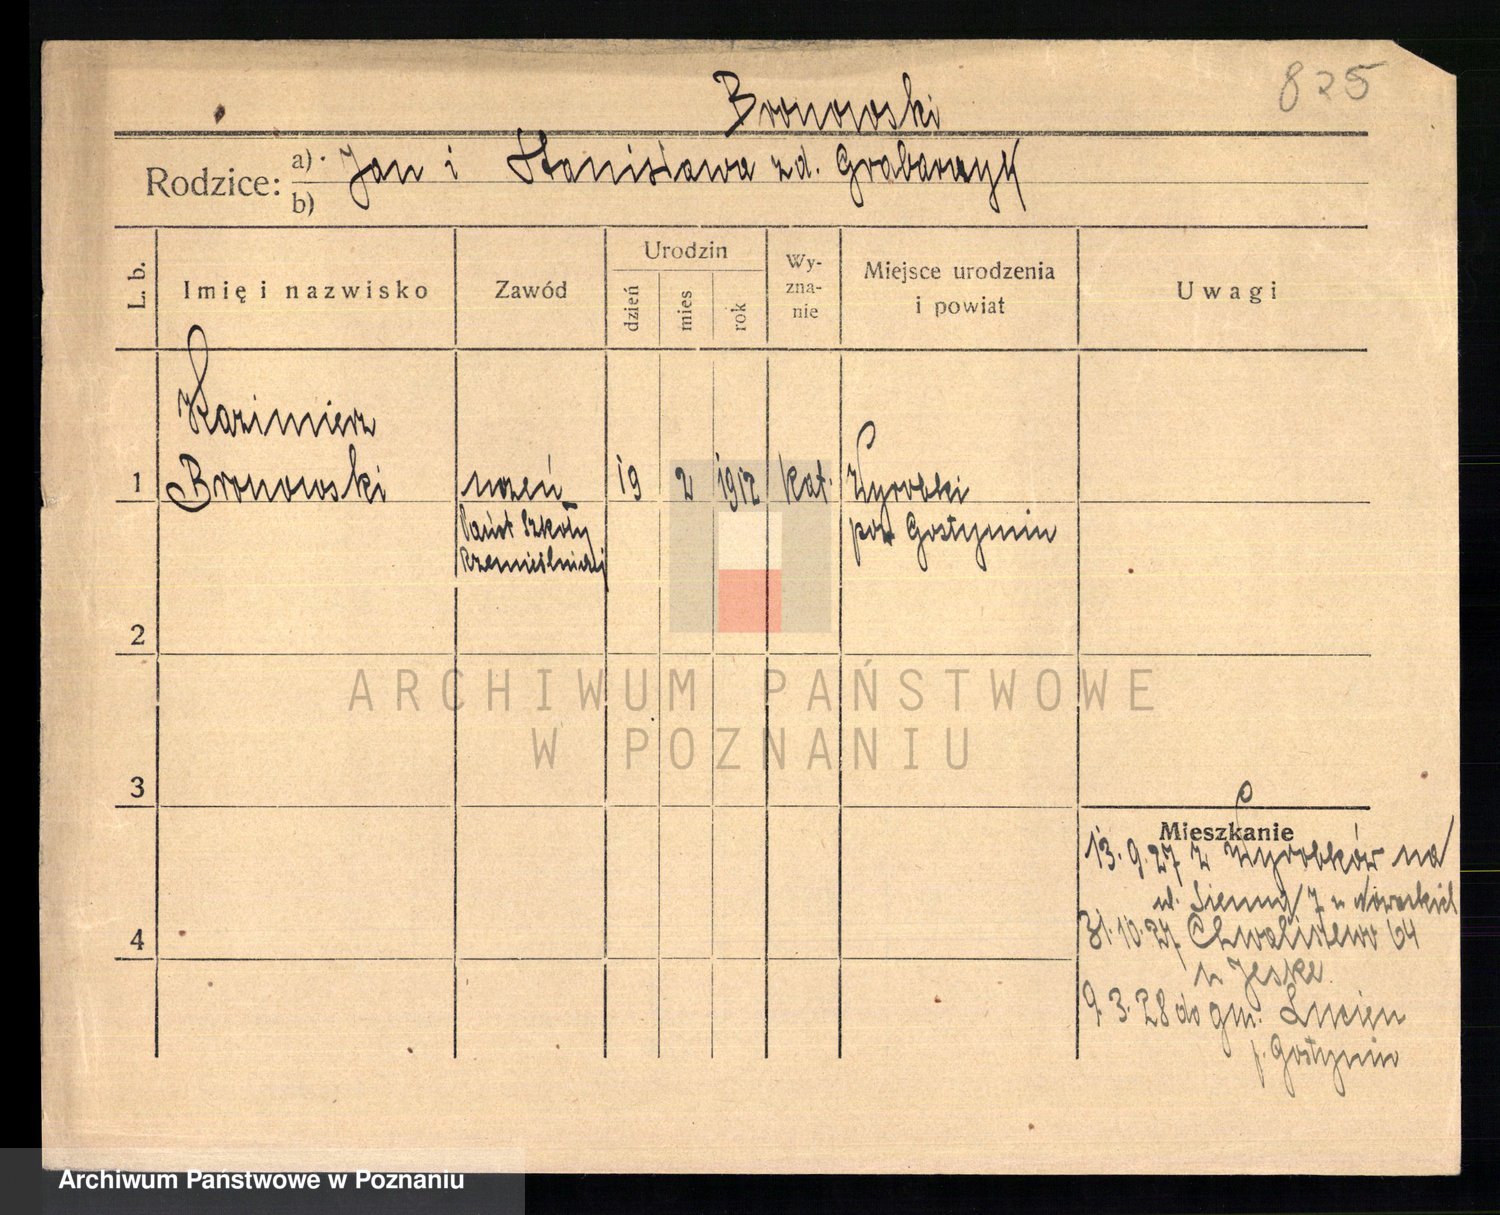 825
Bronowski
Rodzice: a) Jan i Stanisława zd. Grabarczyk
b)
L. b.
Imię i nazwisko
Zawód
Urodzin
dzień
mies
rok
Wy-
zna-
nie
Miejsce urodzenia
i powiat
Uwagi
Kazimierz
1 Bronowski uczeń 19 2 1912 kat. Wyrobki
Państ Szkoły pow Gostynin
Rzemieślniczej
2
ARCHIWUM PAŃSTWOWE
W POZNANIU
3
Mieszkanie
13.9.27 z Wyrobków na
ul. Sienna 7 u
4
31.10.27 Chwaliszewo 64
u Jeske
9.3.28 do gm. Lucień
p. Gostynin
Archiwum Państwowe w Poznaniu